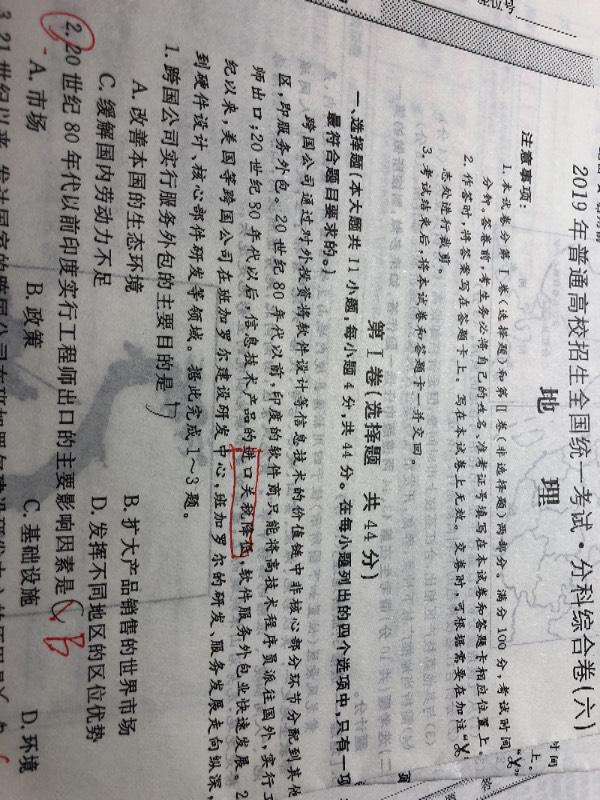 2019年普通高校招生全国统一考试·分科综合卷(六)
地 理
注意事项:
1.本试卷分第Ⅰ卷(选择题)和第Ⅱ卷(非选择题)两部分。满分100分,考试时间
分钟。答卷前,考生务必将自己的姓名、准考证号填写在本试卷和答题卡相应位置上。
2.作答时,将答案写在答题卡上。写在本试卷上无效。交卷时,可根据需要在加注“
志处进行裁剪。
3.考试结束后,将本试卷和答题卡一并交回。
第Ⅰ卷(选择题 共44分)
一、选择题(本大题共11小题,每小题4分,共44分。在每小题列出的四个选项中,只有一项
最符合题目要求的。)
跨国公司通过对外投资将软件设计等信息技术的价值链中非核心部分环节分配到其他
区,即服务外包。20世纪80年代以前,印度的软件商只能将高技术程序员派往国外,实行工
师出口;20世纪80年代以后,信息技术产品的进口关税降低,软件服务外包业快速发展。2
纪以来,美国等跨国公司在班加罗尔建设研发中心,班加罗尔的研发、服务发展走向纵深,
到硬件设计、核心部件研发等领域。据此完成1~3题。
1.跨国公司实行服务外包的主要目的是
A.改善本国的生态环境 B.扩大产品销售的世界市场
C.缓解国内劳动力不足 D.发挥不同地区的区位优势
2.20世纪80年代以前印度实行工程师出口的主要影响因素是 C B
A.市场 B.政策 C.基础设施 D.环境
3.21世纪以来,发达国家的跨国公司在班加罗尔建设研发中心的原因是